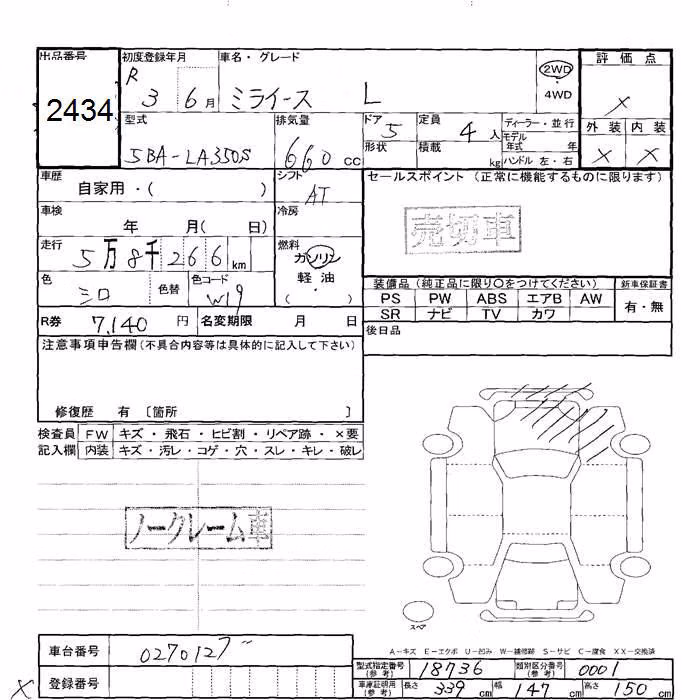 出品番号 初度登録年月 車名・グレード 2WD 評価点
2434 R 3 6月 ミライース L ・ 4WD ×
型式 排気量 ドア 5 定員 4人 ディーラー・並行 外装 内装
5BA-LA350S 660cc 形状 積載 kg モデル年式 年 × ×
ハンドル 左・右
車歴 自家用・( ) シフト AT セールスポイント(正常に機能するものに限ります)
車検 年 月( 日) 冷房 売切車
走行 5万8千266km 燃料 ガソリン
軽油
・
( )
色 シロ 色替 色コード W19 装備品(純正品に限り〇をつけてください) 新車保証書
PS PW ABS エアB AW 有・無
R券 7,140円 名変期限 月 日 SR ナビ TV カワ
注意事項申告欄(不具合内容等は具体的に記入して下さい) 後日品
修復歴 有 〔箇所 〕
検査員 FW キズ・飛石・ヒビ割・リペア跡・×要
記入欄 内装 キズ・汚レ・コゲ・穴・スレ・キレ・破レ
ノークレーム車
スペア
A-キズ E-エクボ U-凹み W-補修跡 S-サビ C-腐食 XX-交換済
車台番号 0270127 型式指定番号(参考) 18736 類別区分番号(参考) 0001
× 登録番号 車庫証明用(参考) 長さ 339cm 幅 147cm 高さ 150cm